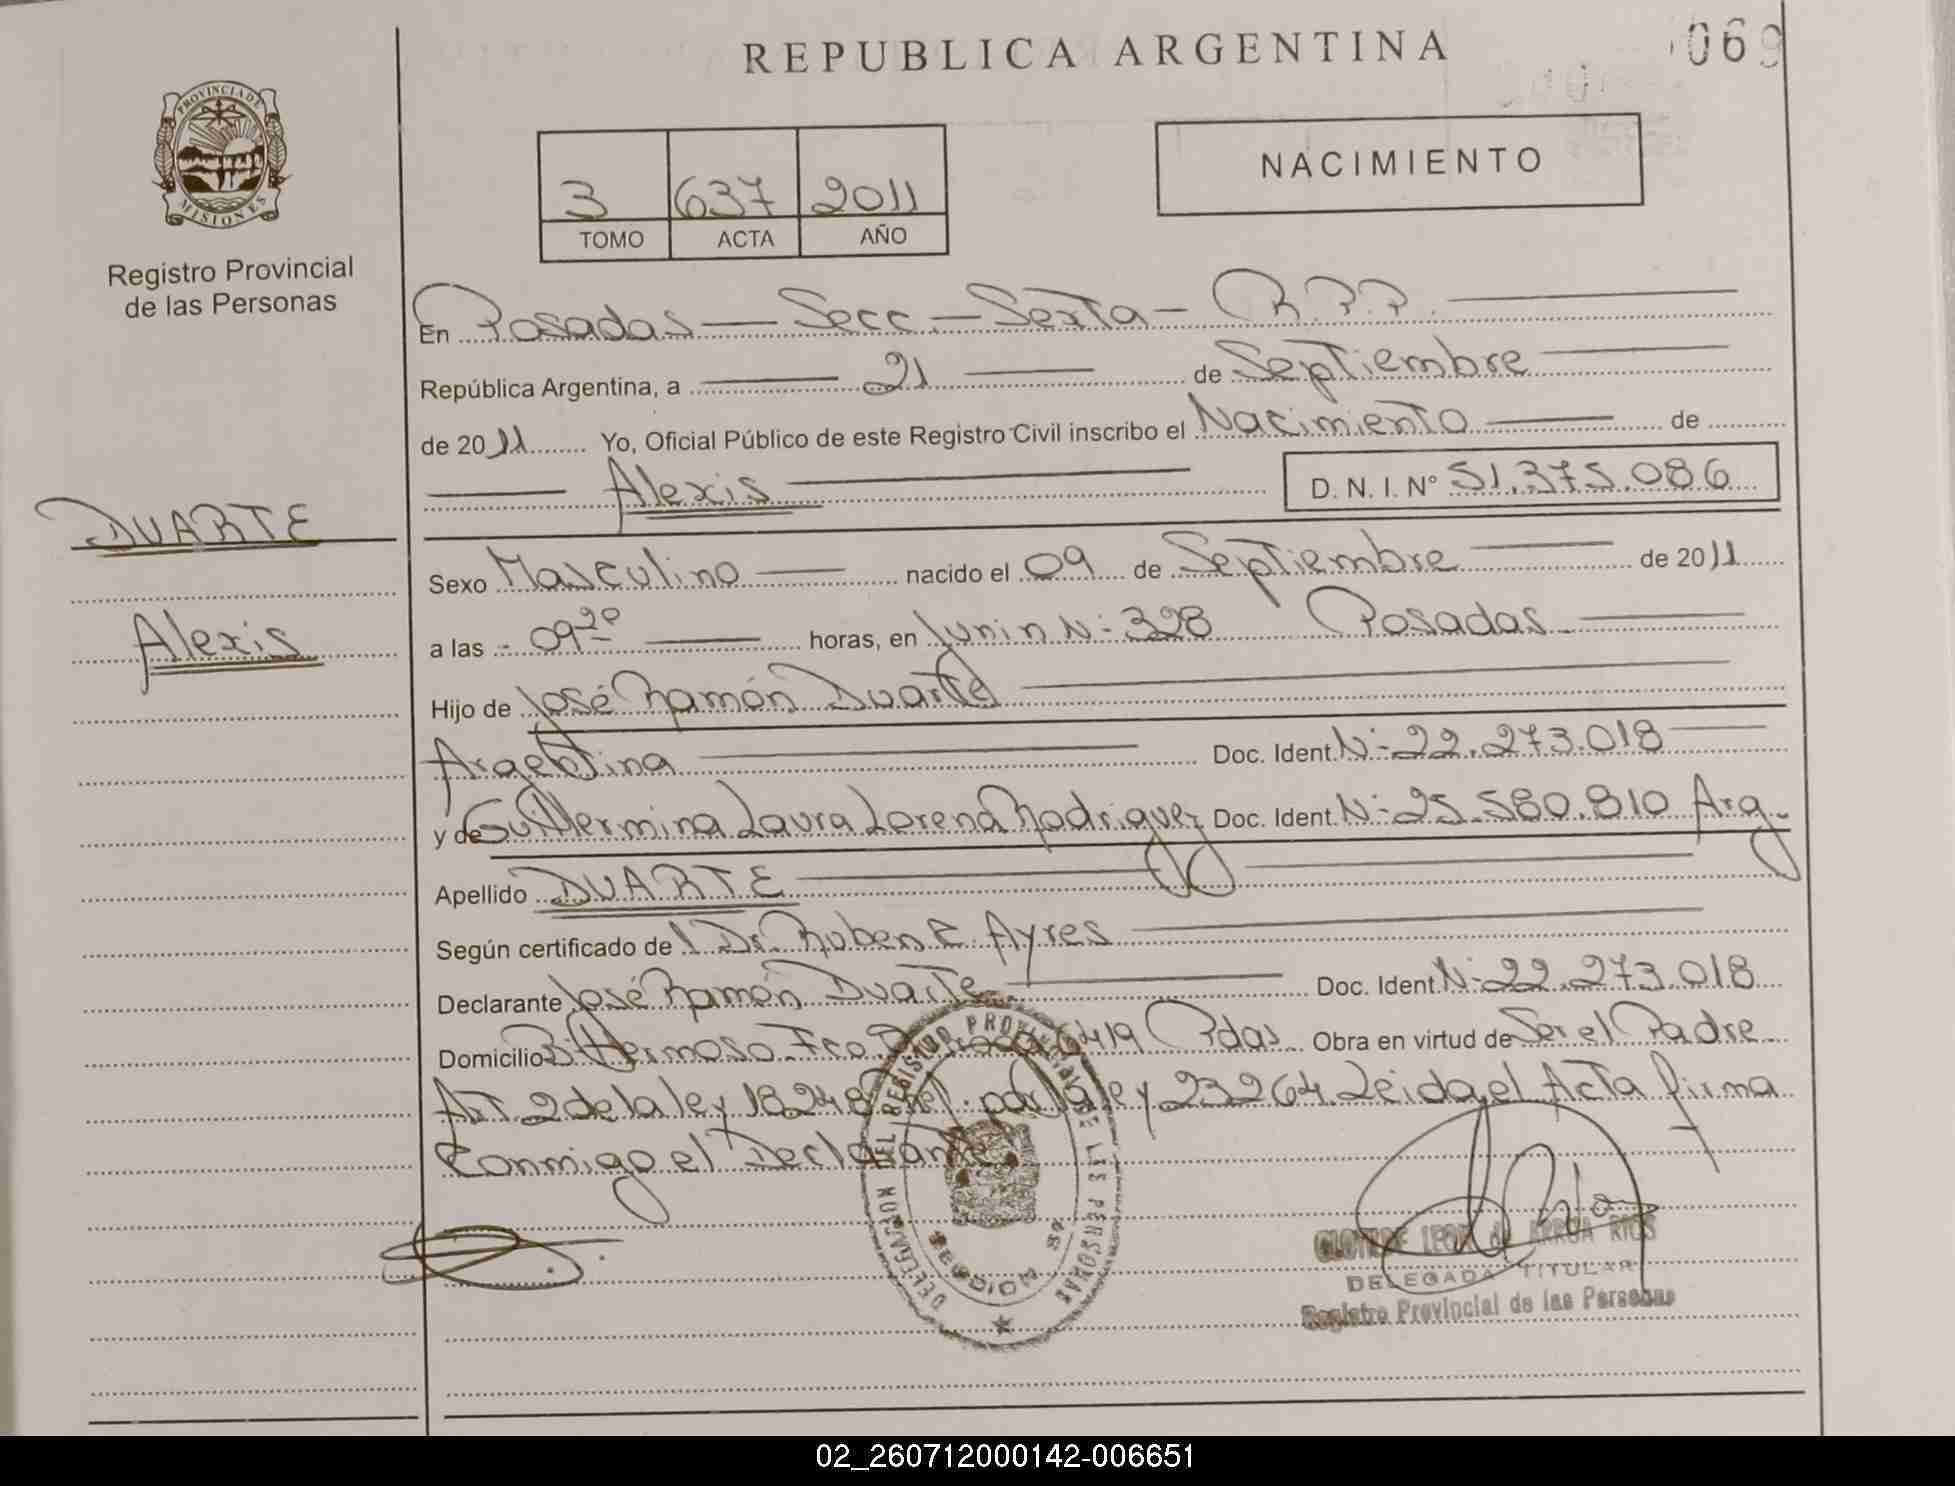 REPUBLICA ARGENTINA
069
PROVINCIA DE
MISIONES
Registro Provincial
de las Personas
3 637 2011
TOMO ACTA AÑO
NACIMIENTO
En Posadas — Secc. — Sexta — R.P.P.
República Argentina, a 21 de Septiembre
de 2011 Yo, Oficial Público de este Registro Civil inscribo el Nacimiento de
Alexis D. N. I. Nº 51.375.086
DUARTE
Alexis
Sexo Masculino nacido el 09 de Septiembre de 2011
a las 09 20 horas, en Junin Nº 328 Posadas
Hijo de José Ramón Duarte
Argentina Doc. Ident. Nº 22.273.018
y de Guillermina Laura Lorena Rodriguez Doc. Ident. Nº 25.580.810 Arg.
Apellido DUARTE
Según certificado de Dr. Ruben E. Ayres
Declarante José Ramón Duarte Doc. Ident. Nº 22.273.018
Domicilio Bº Hermoso Fco. 6419 Pdas Obra en virtud de Ser el Padre
Art 2 de la ley 18248 por la ley 23264. Leida el Acta firma
Conmigo el Declarante
DELEGACION DEL REGISTRO PROVINCIAL DE LAS PERSONAS
DELEGADA TITULAR
Registro Provincial de las Personas
02_260712000142-006651